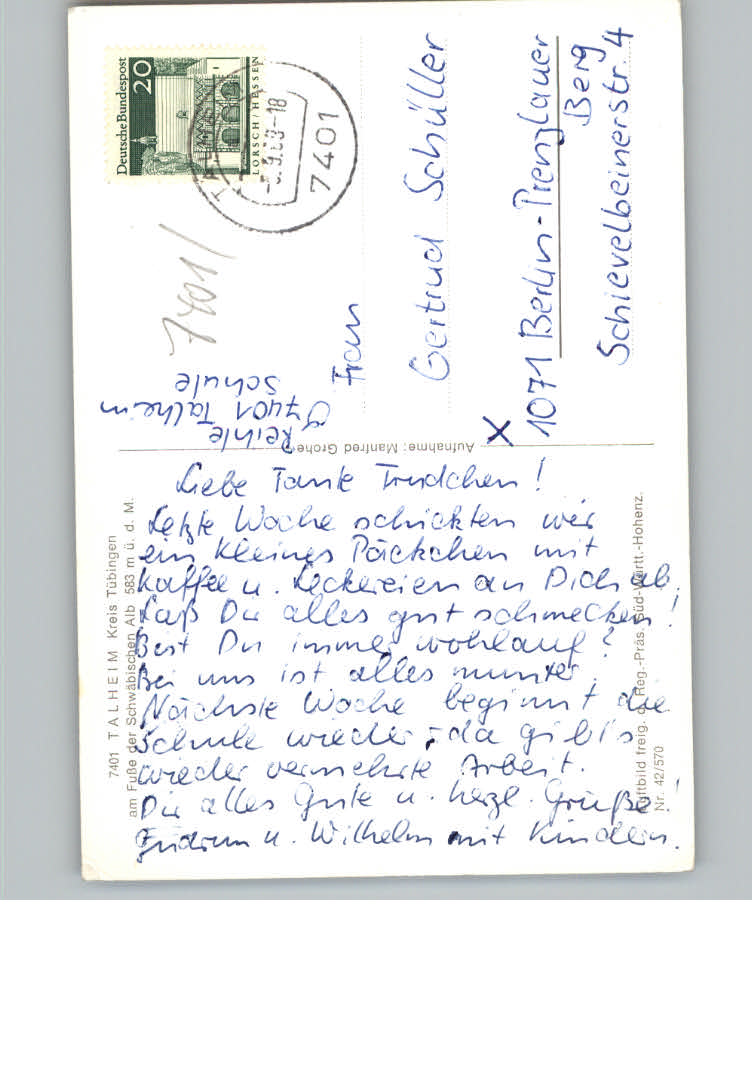 Deutsche Bundespost
20
LORSCH/HESSEN
7401
7401/
Reihle
7401 Talheim
Schule
Frau
Gertrud Schüller
1071 Berlin-Prenzlauer
Berg
Schievelbeinerstr. 4
X
Aufnahme: Manfred Grohe
Liebe Tante Trudchen!
Letzte Woche schickten wir
ein kleines Päckchen mit
Kaffee u. Leckereien an Dich ab.
Laß Du alles gut schmecken!
Bist Du immer wohlauf?
Bei uns ist alles munter.
Nächste Woche beginnt die
Schule wieder, da gibt's
wieder vermehrte Arbeit.
Dir alles Gute u. herzl. Grüße!
Gudrun u. Wilhelm mit Kindern.
7401 TALHEIM Kreis Tübingen
am Fuße der Schwäbischen Alb 583 m ü. d. M.
Luftbild freig. d. Reg.-Präs. Süd-Württ.-Hohenz.
Nr. 42/570